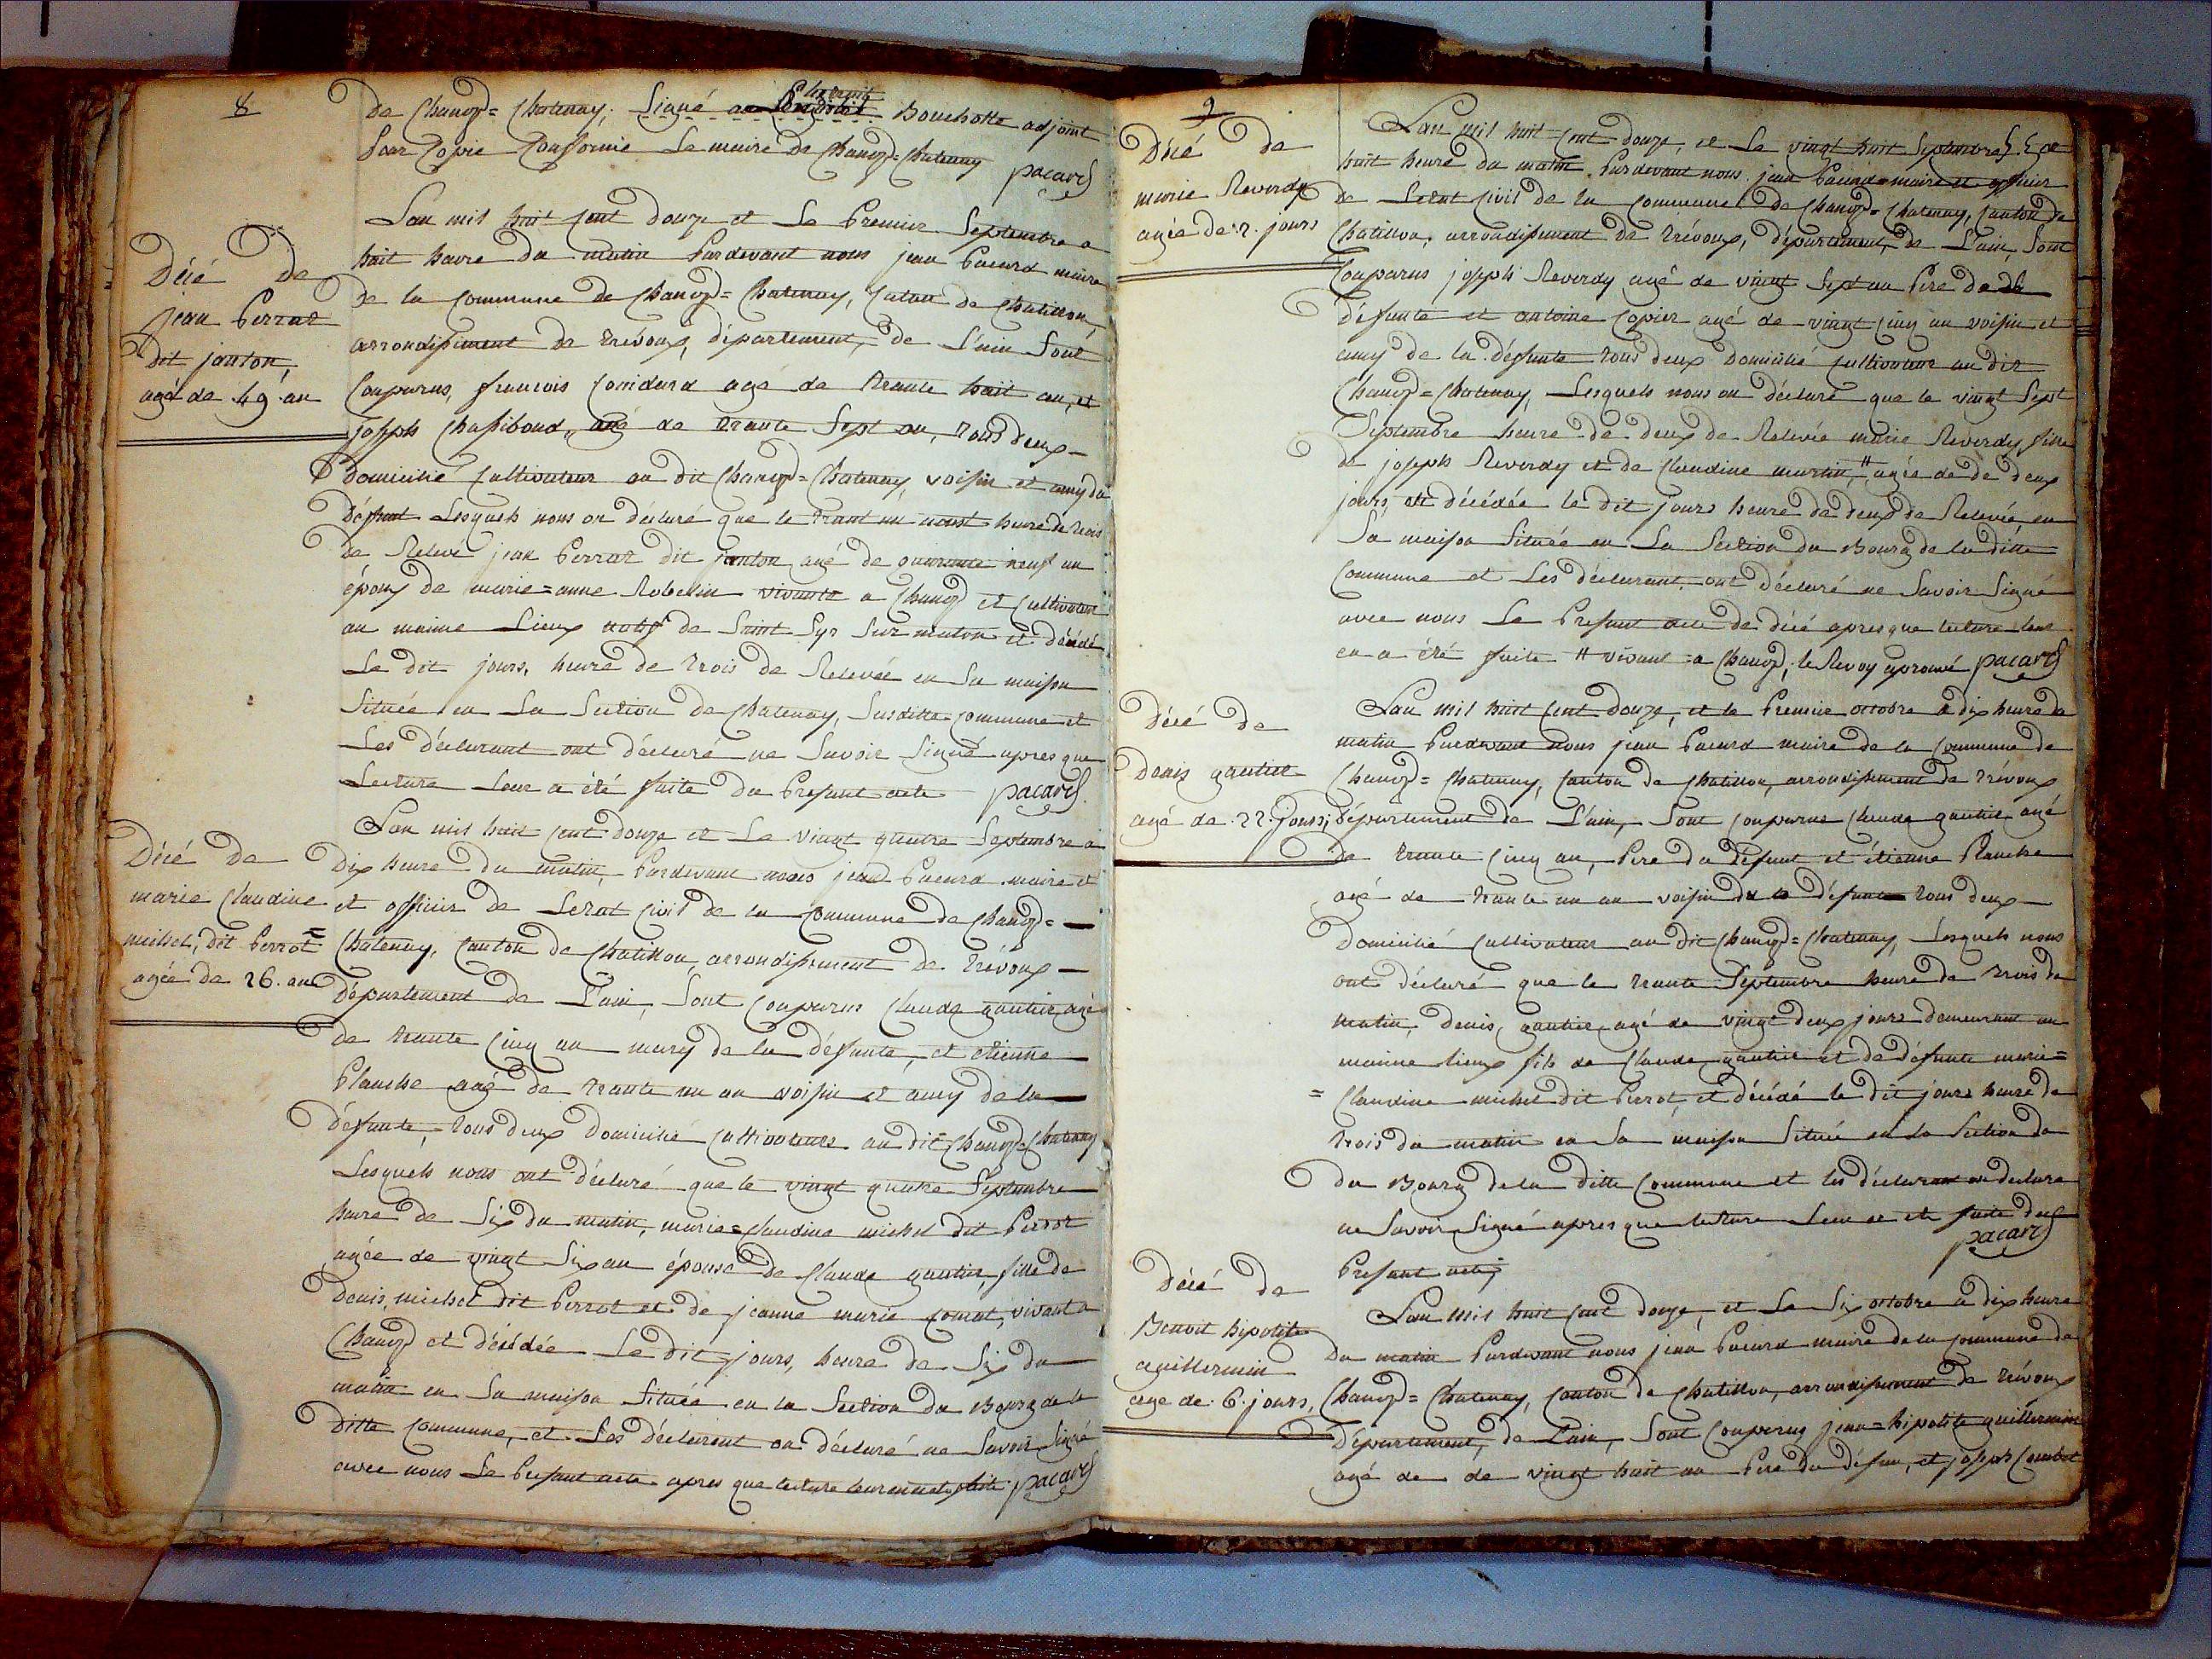 8
de Chanoz=Chatenay, Signé a Bouchotte adjoint
Pour Copie Conforme Le maire de Chanoz=Chatenay pacard
Décé de
jean Perrat
dit janton,
agé de 49 an
L'an mil huit cent douze et Le Premier Septembre a
huit heure du matin Pardevant nous jean Pacard maire
de la Commune de Chanoz=Chatenay, Caton de Chatillon,
arrondissement de trévoux, département, de L'ain Sont
Comparus, francois Conidard agé de trante huit an, et
joseph Chassiboud, agé de trante Sept an, tous deux
domicilié Cultivateur au dit Chanoz=Chatenay, voisin et amy du
défunt Lesquels nous on déclaré que le trant un aoust heure de trois
de Relevé jean Perrat dit janton agé de quarante neuf an
époux de marie=anne Robelin vivante a Chanoz et Cultivateur
au maime Lieux natif de Saint Syr Sur maton et décédé
Le dit jours, heure de trois de Relevée en Sa maison
Située en La Section de Chatenay, Susditte Commune et
Les déclarant ont déclaré ne Savoir Signé apres que
Lecture Leur a été faite du Present acte pacard
Décé de
marie Claudine
michel, dit Perrot=
agée de 26. an
L'an mil huit cent douze et Le vingt quatre Septembre a
Dix heure du matin, Pardevant nous jean Pacard maire et
et officier de Letat Civil de la Commune de Chanoz=
Chatenay, Canton de Chatillon, arrondissement de Trévoux
département de L'ain, Sont Comparus Claude gautier agé
de trante Cinq an mary de la défunte, et etienne
Planche agé de trante un an voisin et amy de la
défunte, tous deux domicilié Cultivateurs au dit Chanoz=Chatenay
Lesquels nous ont déclaré que le vingt quatre Septembre
heure de Six du matin, marie=Claudine michel dit Perrot
agée de vingt Six an épouse de Claude gautier, fille de
denis, michel dit Perrot et de jeanne marie Comat, vivant a
Chanoz et décédée Le dit jours, heure de Six du
matin en Sa maison Située en la Section du Bourg de la
ditte Commune, et Les déclarent on déclaré ne Savoir Signé
avec nous Le Present acte apres que lecture leur en a été faite pacard
9
Décé de
marie Reverdy
agée de 2. jours
L'an mil huit cent douze, et Le vingt huit Septembre
huit heure du matin. Pardevant nous jean Pacard maire et officier
de Letat Civil de la Commune de Chanoz=Chatenay, Canton de
Chatillon, arrondissement de trévoux, département, de L'ain, Sont
Comparus joseph Reverdy agé de vingt Sept an Pere de la
défunte et antoine Copier agé de vingt Cinq an voisin et
amy de la défunte tous deux Domicilié Cultivateur au dit
Chanoz=Chatenay, Lesquels nous on déclaré que le vingt Sept
Septembre heure de deux de Relevée marie Reverdy fille
de joseph Reverdy et de Claudine martin, # agée de de deux
jours, et décédée le dit jours heure de deux de Relevée en
Sa maison Située en La Section du Bourg de la ditte
Commune et Les déclarant ont déclaré ne Savoir Signé
avec nous Le Present acte de décé apres que lecture leur
en a été faite # vivant a Chanoz, le Revoy aprouvé pacard
Décé de
Denis gautier
agé de 22. jours;
L'an mil huit cent douze, et le Premier octobre a dix heure du
matin Pardevant nous jean Pacard maire de la Commune de
Chanoz=Chatenay, Canton de Chatillon, arrondissement de trévoux
département de L'ain, Sont Comparus Claude gautier agé
de trante Cinq an, Pere du défunt et étienne Planche
agé de trante un an voisin du la défunte tous deux
Domicilié Cultivateur au dit Chanoz=Chatenay, Lesquels nous
ont déclaré que le trante Septembre heure de trois de
matin, denis, gautier agé de vingt deux jours demeurant au
maime lieux fils de Claude gautier et de défunte marie=
=Claudine michel dit Perrot, et décédé le dit jours heure de
trois du matin en Sa maison Située en la Section du
du Bourg de la ditte Commune et les déclarant on declare
ne Savoir Signé apres que lecture Leur a ete faite du
Present acte, pacard
Décé de
Benoit hipolite
aguillermin
age de. 6. jours,
L'an mil huit cent douze, et Le Six octobre a dix heure
Du matin Pardevant nous jean Pacard maire de la Commune de
Chanoz=Chatenay, Canton de Chatillon, arrondissement de trévoux
Département, de L'ain, Sont Comparus jean=hipolite guillermin
agé de de vingt huit an Pere du défun, et joseph Combet